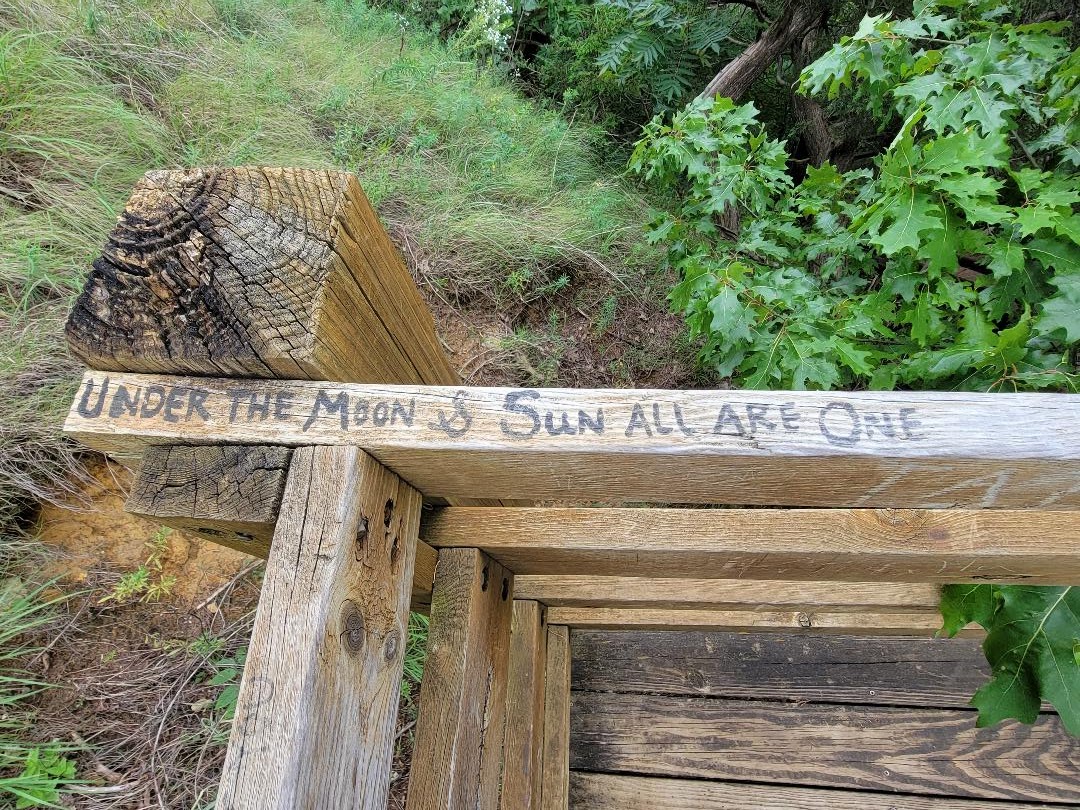 UNDER THE MOON & SUN ALL ARE ONE